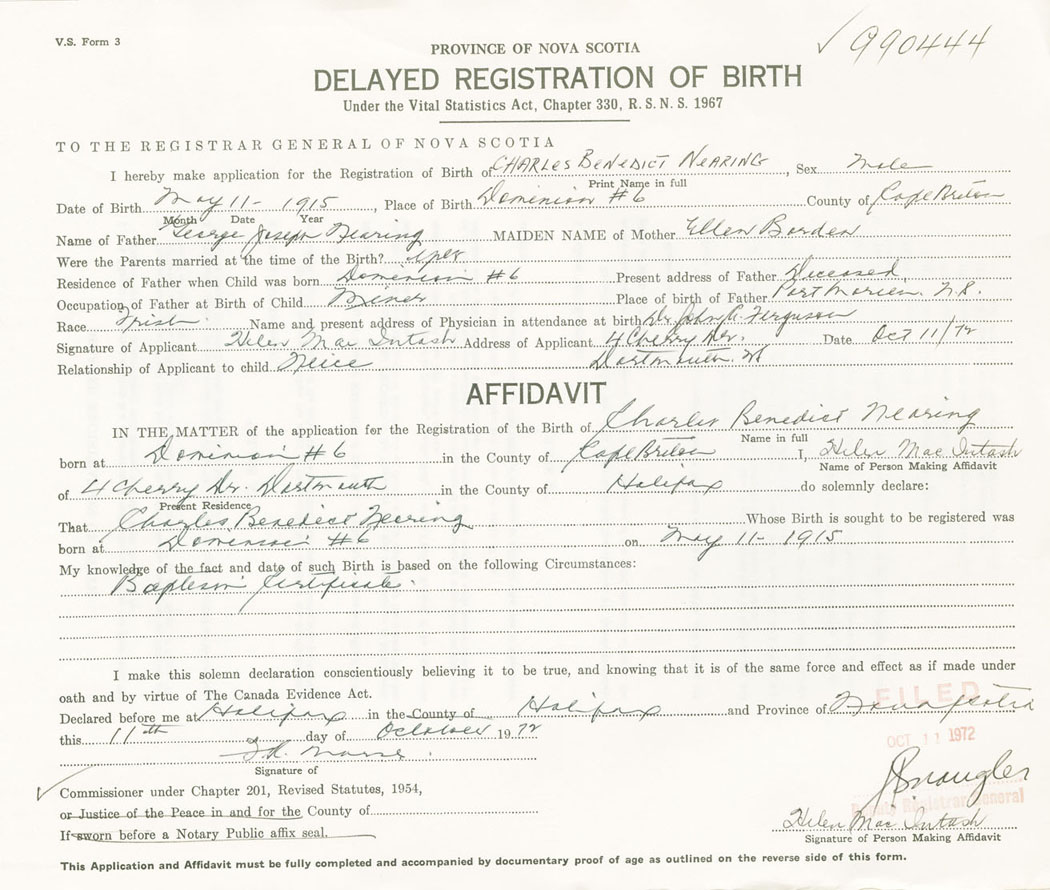 V.S. Form 3
✓ 990444
PROVINCE OF NOVA SCOTIA
DELAYED REGISTRATION OF BIRTH
Under the Vital Statistics Act, Chapter 330, R. S. N. S. 1967
TO THE REGISTRAR GENERAL OF NOVA SCOTIA
I hereby make application for the Registration of Birth of CHARLES BENEDICT NEARING, Sex Male
Print Name in full
Date of Birth May 11- 1915, Place of Birth Dominion #6 County of Cape Breton
Month Date Year
Name of Father George Joseph Nearing MAIDEN NAME of Mother Ellen Borden
Were the Parents married at the time of the Birth?
Residence of Father when Child was born Dominion #6 Present address of Father Deceased
Occupation of Father at Birth of Child Miner Place of birth of Father Port Morien. N.S.
Race Irish. Name and present address of Physician in attendance at birth Dr. John C. Ferguson
Signature of Applicant Helen Mac Intosh Address of Applicant 4 Cherry Dr. Date Oct 11/72
Relationship of Applicant to child Neice Dartmouth.
AFFIDAVIT
IN THE MATTER of the application for the Registration of the Birth of Charles Benedict Nearing
Name in full
born at Dominion #6 in the County of Cape Breton I, Helen Mac Intosh
Name of Person Making Affidavit
of 4 Cherry Dr. Dartmouth in the County of Halifax do solemnly declare:
Present Residence
That Charles Benedict Nearing Whose Birth is sought to be registered was
born at Dominion #6 on May 11- 1915
My knowledge of the fact and date of such Birth is based on the following Circumstances:
Baptism Certificate.
I make this solemn declaration conscientiously believing it to be true, and knowing that it is of the same force and effect as if made under
oath and by virtue of The Canada Evidence Act.
Declared before me at Halifax in the County of Halifax and Province of Nova Scotia
FILED
this 11th day of October 1972
OCT 11 1972
Signature of
Commissioner under Chapter 201, Revised Statutes, 1954,
or Justice of the Peace in and for the County of
Deputy Registrar General
If sworn before a Notary Public affix seal.
Helen Mac Intosh
Signature of Person Making Affidavit
This Application and Affidavit must be fully completed and accompanied by documentary proof of age as outlined on the reverse side of this form.